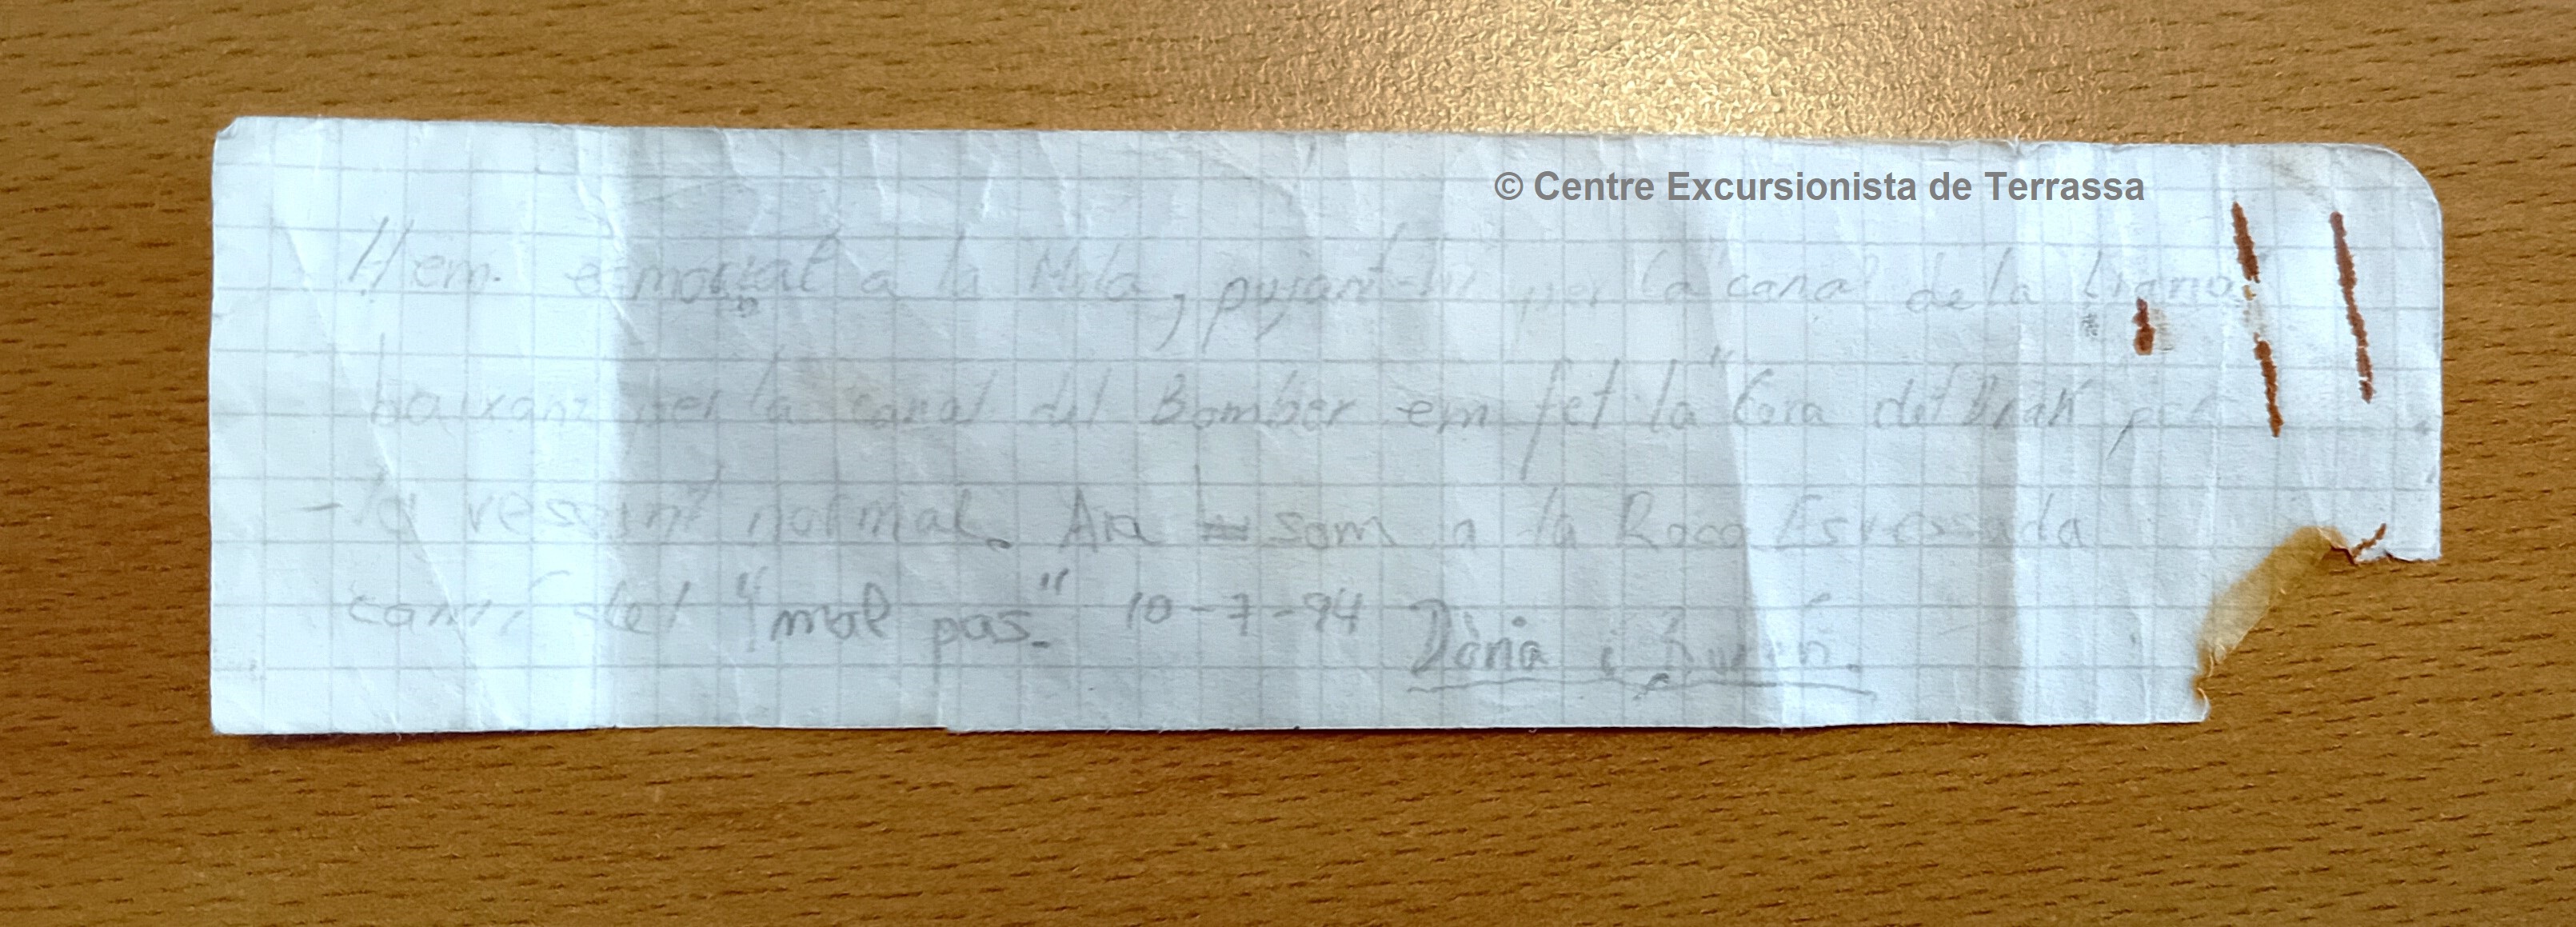 © Centre Excursionista de Terrassa
Hem esmorzat a la Mola, pujant-hi per la "canal de la
baixant per la canal del Bomber em fet la "Cova del Drak" per
-la vessant normal. Ara som a la Roca Esvessada
camí del "mal pas." 10-7-94 Dània i